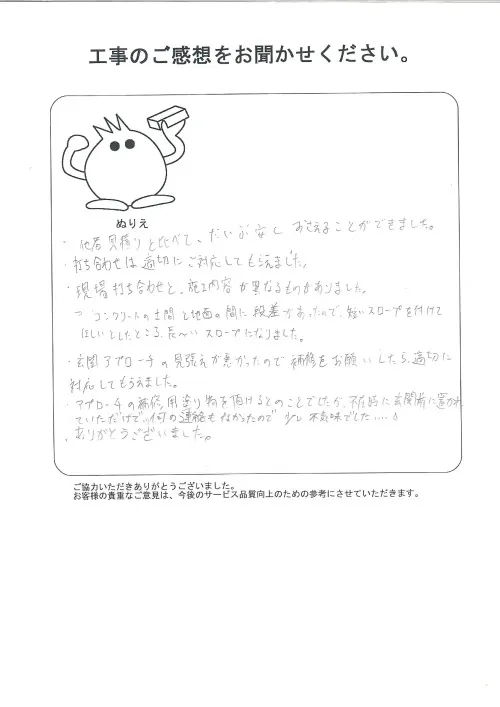 工事のご感想をお聞かせください。
ぬりえ
・他若見積りと比べて、だいぶ安くおさえることができました。
・打ち合わせは適切にご対応してもらえました。
・現場打ち合わせと、施工内容が異なるものがありました。
→コンクリートの土間と地面の間に段差があったので、短いスロープを付けて
ほしいとしたところ、長〜いスロープになりました。
・玄関アプローチの見張えが悪かったので補修をお願いしたら、適切に
対応してもらえました。
・アプローチの補修用塗り物を頂けるとのことでしたが、不在時に玄関前に置かれ
ていただけで、何の連絡もなかったので少し不気味でした....。
・ありがとうございました。
ご協力いただきありがとうございました。
お客様の貴重なご意見は、今後のサービス品質向上のための参考にさせていただきます。